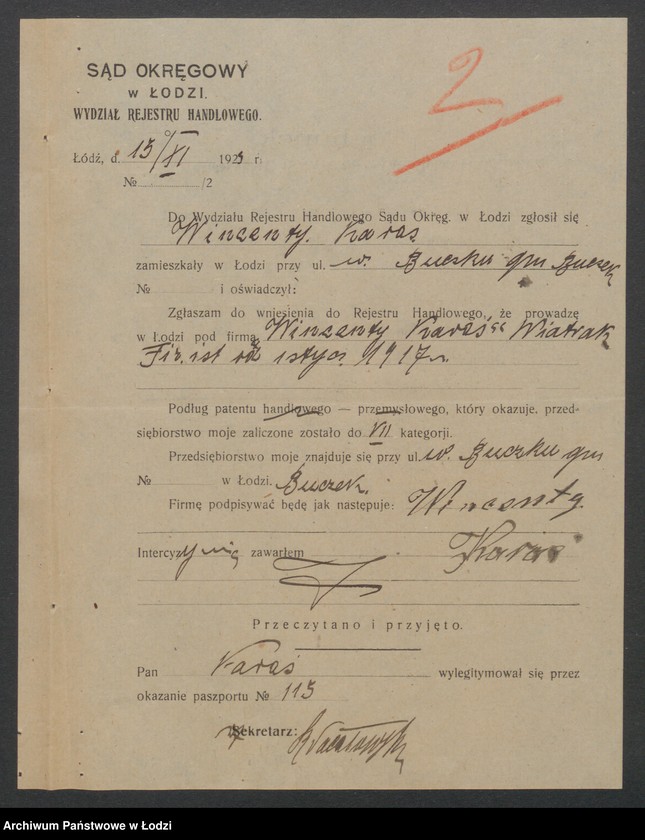 2
SĄD OKRĘGOWY
w ŁODZI.
WYDZIAŁ REJESTRU HANDLOWEGO.
Łódź, d. 15/XI 1923 r.
№ /2
Do Wydziału Rejestru Handlowego Sądu Okręg. w Łodzi zgłosił się
Wincenty Karaś
zamieszkały w Łodzi przy ul. w. Buczku gm Buczek
№ i oświadczył:
Zgłaszam do wniesienia do Rejestru Handlowego, że prowadzę
w Łodzi pod firmą Wincenty Karaś" Wiatrak
Fir. ist od 1 stycz. 1917 r.
Podług patentu handlowego — przemysłowego, który okazuje. przed-
siębiorstwo moje zaliczone zostało do VII kategorji.
Przedsiębiorstwo moje znajduje się przy ul. w. Buczku gm
№ w Łodzi. Buczek.
Firmę podpisywać będę jak następuje: Wincenty
Intercyzy nie zawarłem Karaś
Przeczytano i przyjęto.
Pan Karaś wylegitymował się przez
okazanie paszportu № 115
Sekretarz:
Archiwum Państwowe w Łodzi